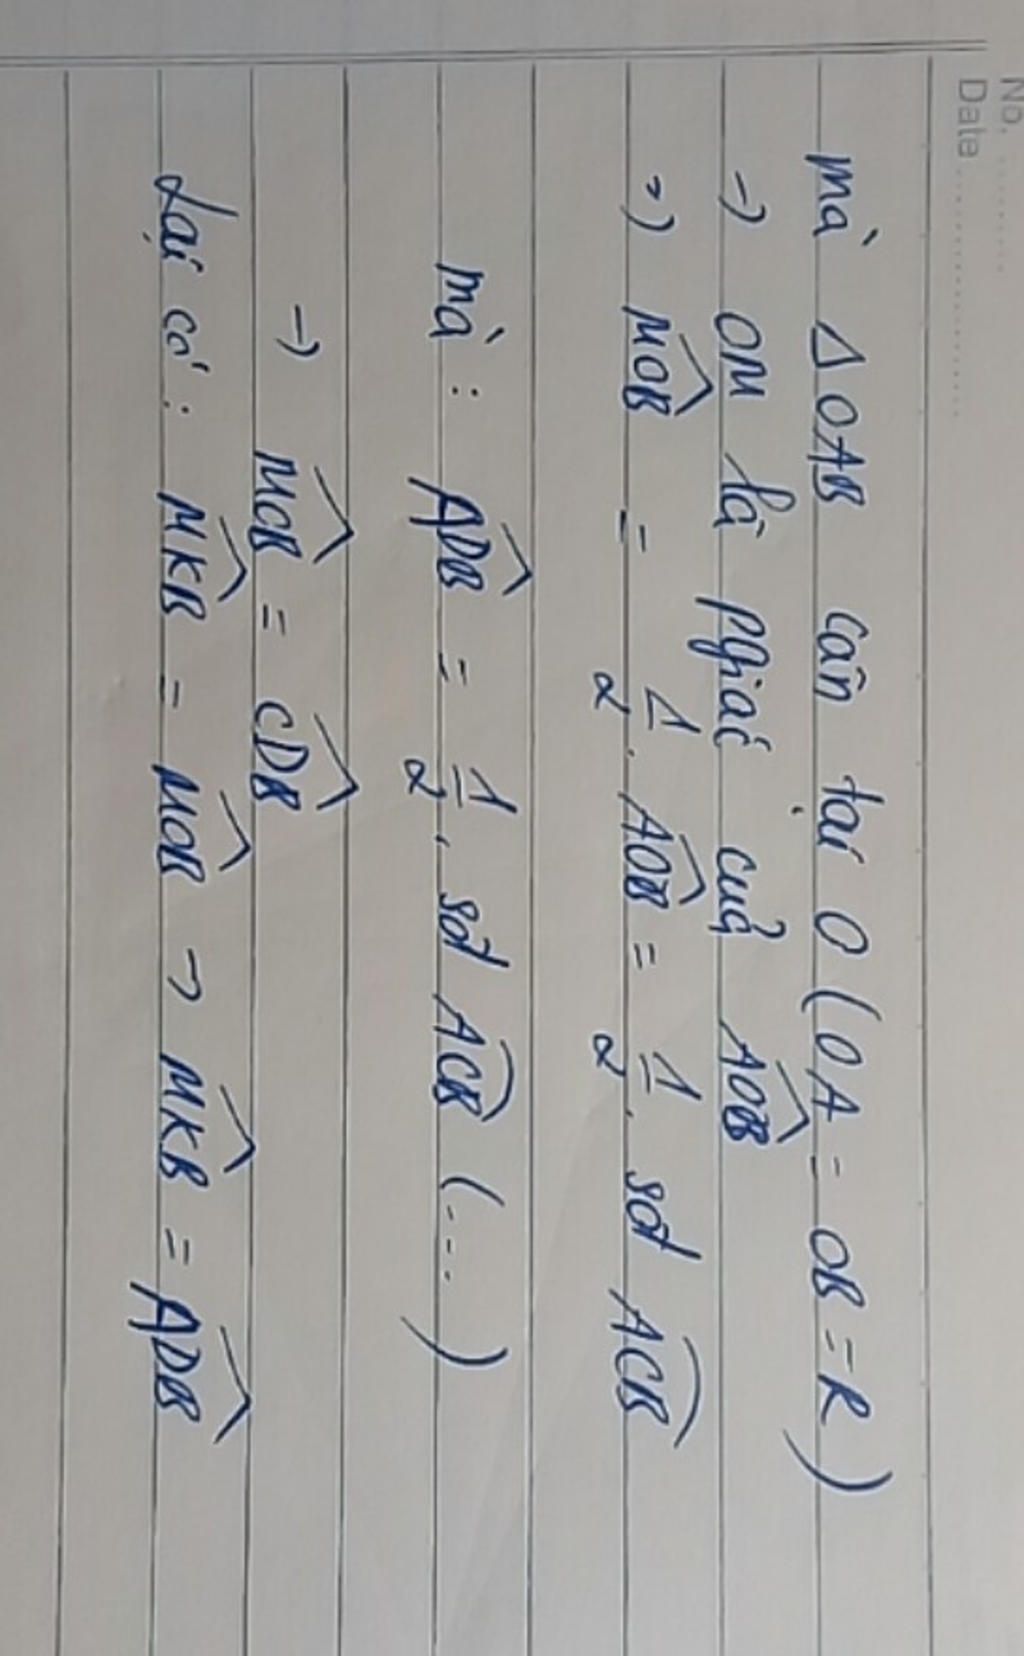 No. ............
Date ........................
mà Δ OAB cân tại O (OA = OB = R)
→ OM là pgiác của \widehat{AOB}
⇒ \widehat{MOB} = \frac{1}{2} . \widehat{AOB} = \frac{1}{2} . sđ \overset{\frown}{ACB}
mà : \widehat{ADB} = \frac{1}{2} . sđ \overset{\frown}{ACB} (...)
→ \widehat{MOB} = \widehat{CDB}
Lại có : \widehat{MKB} = \widehat{MOB} → \widehat{MKB} = \widehat{ADB}